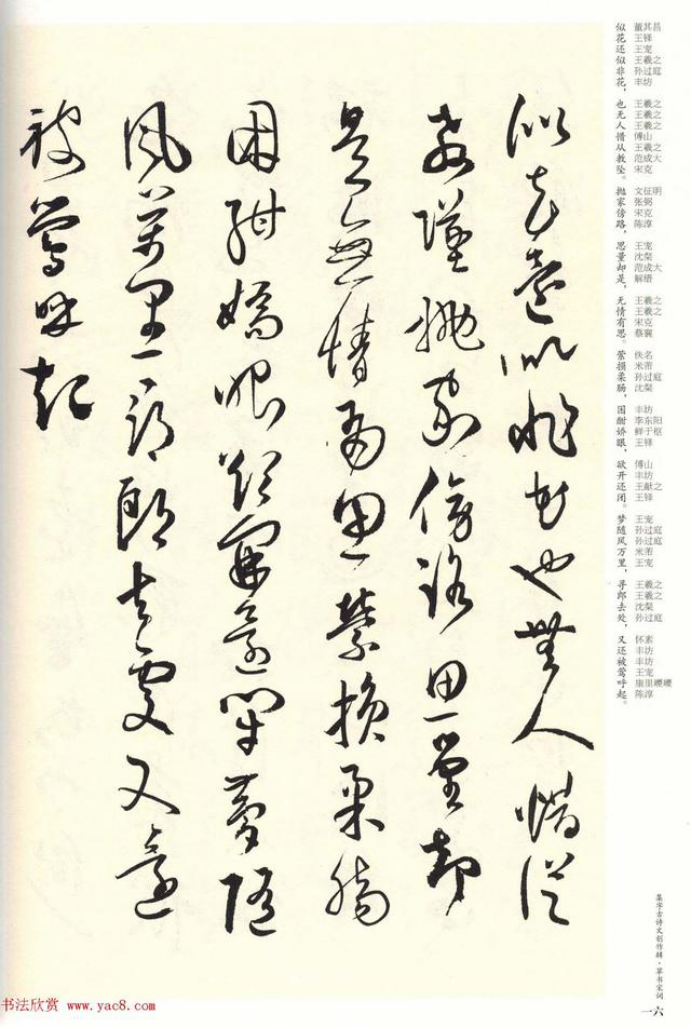 似花还似非花，也无人惜从教坠。抛家傍路，思量却是，无情有思。萦损柔肠，困酣娇眼，欲开还闭。梦随风万里，寻郎去处，又还被莺呼起。
董其昌
王铎
王宠
王羲之
孙过庭
丰坊
王羲之
王羲之
王羲之
傅山
王羲之
范成大
宋克
文征明
张弼
宋克
陈淳
王宠
沈粲
范成大
解缙
王羲之
王羲之
宋克
蔡襄
佚名
米芾
孙过庭
沈粲
丰坊
李东阳
鲜于枢
王铎
傅山
丰坊
王献之
王铎
王宠
孙过庭
孙过庭
米芾
王宠
王羲之
王羲之
沈粲
孙过庭
怀素
丰坊
丰坊
王宠
康里巎巎
陈淳
似花還似非花也無人惜從
教墜拋家傍路思量却
是無情有思縈損柔腸
困酣嬌眼欲開還閉夢隨
風萬里尋郎去處又還
被鶯呼起
集字古诗文创作辑·草书宋词
一六
书法欣赏 www.yac8.com